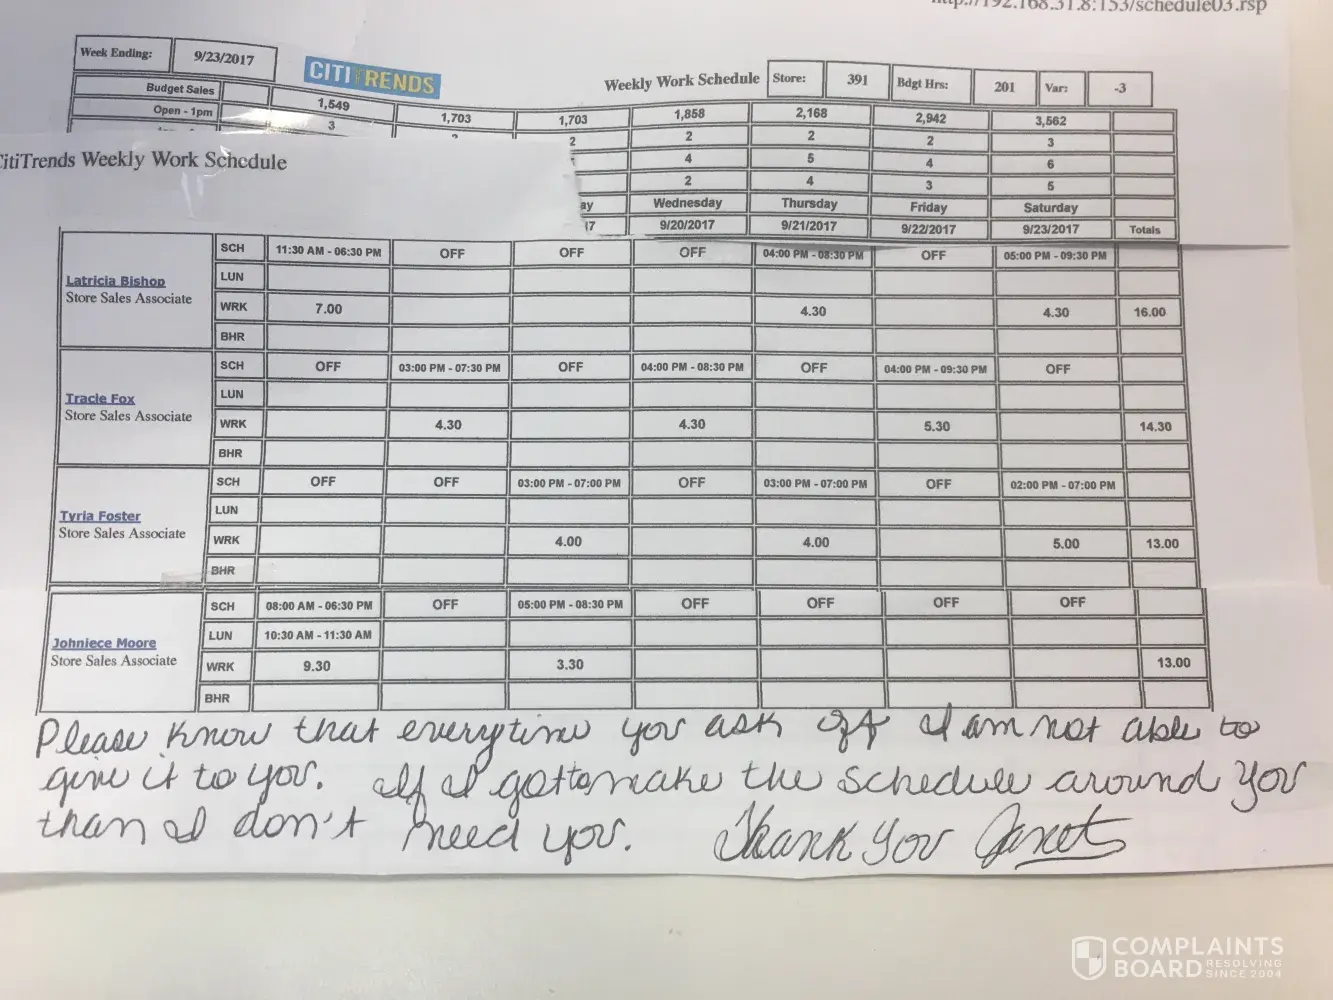 http://192.168.31.8:153/schedule03.rsp
Week Ending: 9/23/2017 CITI TRENDS Weekly Work Schedule Store: 391 Bdgt Hrs: 201 Var: -3
Budget Sales 1,549 1,703 1,703 1,858 2,168 2,942 3,562
Open - 1pm 3 2 2 2 2 3
4 5 4 6
2 4 3 5
CitiTrends Weekly Work Schedule
ay Wednesday Thursday Friday Saturday
17 9/20/2017 9/21/2017 9/22/2017 9/23/2017 Totals
Latricia Bishop
Store Sales Associate
SCH 11:30 AM - 06:30 PM OFF OFF OFF 04:00 PM - 08:30 PM OFF 05:00 PM - 09:30 PM
LUN
WRK 7.00 4.30 4.30 16.00
BHR
Tracie Fox
Store Sales Associate
SCH OFF 03:00 PM - 07:30 PM OFF 04:00 PM - 08:30 PM OFF 04:00 PM - 09:30 PM OFF
LUN
WRK 4.30 4.30 5.30 14.30
BHR
Tyria Foster
Store Sales Associate
SCH OFF OFF 03:00 PM - 07:00 PM OFF 03:00 PM - 07:00 PM OFF 02:00 PM - 07:00 PM
LUN
WRK 4.00 4.00 5.00 13.00
BHR
Johniece Moore
Store Sales Associate
SCH 08:00 AM - 06:30 PM OFF 05:00 PM - 08:30 PM OFF OFF OFF OFF
LUN 10:30 AM - 11:30 AM
WRK 9.30 3.30 13.00
BHR
Please know that everytime you ask off I am not able to
give it to you. If I gotto make the schedule around you
than I don't need you. Thank you Janet
COMPLAINTS
BOARD RESOLVING
SINCE 2004